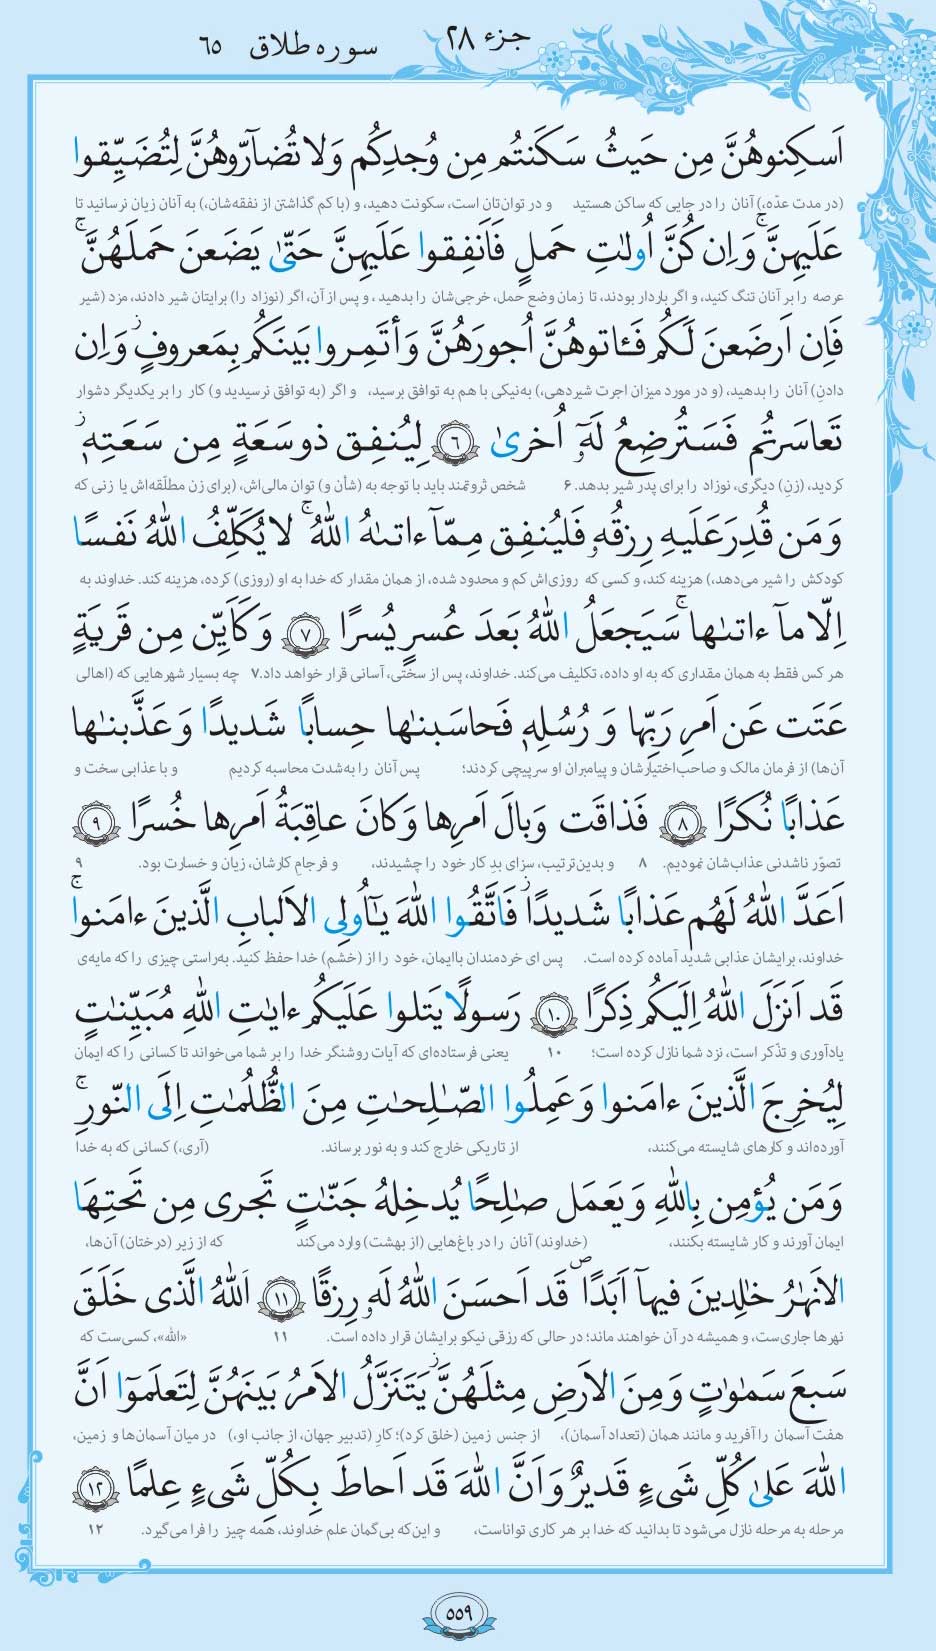 جزء ۲۸
سوره طلاق ۶۵
اَسکِنوهُنَّ مِن حَیثُ سَکَنتُم مِن وُجدِکُم وَلا تُضآرّوهُنَّ لِتُضَیِّقوا
(در مدت عدّه،) آنان را در جایی که ساکن هستید و در توان‌تان است، سکونت دهید، و (با کم گذاشتن از نفقه‌شان،) به آنان زیان نرسانید تا
عَلَیهِنَّ ۚ وَاِن کُنَّ اُولٰتِ حَملٍ فَاَنفِقوا عَلَیهِنَّ حَتّیٰ یَضَعنَ حَملَهُنَّ ۚ
عرصه را بر آنان تنگ کنید، و اگر باردار بودند، تا زمان وضع حمل، خرجی‌شان را بدهید، و پس از آن، اگر (نوزاد را) برایتان شیر دادند، مزد (شیر
فَاِن اَرضَعنَ لَکُم فَـٔاتوهُنَّ اُجورَهُنَّ وَأتَمِروا بَینَکُم بِمَعروفٍ ز وَاِن
دادنِ) آنان را بدهید، (و در مورد میزان اجرت شیردهی،) به‌نیکی با هم به توافق برسید، و اگر (به توافق نرسیدید و) کار را بر یکدیگر دشوار
تَعاسَرتُم فَسَتُرضِعُ لَهٗٓ اُخریٰ ۶ لِیُنفِق ذوسَعَةٍ مِن سَعَتِهٖ ز
کردید، (زنِ) دیگری، نوزاد را برای پدر شیر بدهد. ۶ شخص ثروتمند باید با توجه به (شأن و) توان مالی‌اش، (برای زن مطلّقه‌اش یا زنی که
وَمَن قُدِرَ عَلَیهِ رِزقُهٗ فَلیُنفِق مِمّآ ءاتٰىهُ اللهُ ۚ لا یُکَلِّفُ اللهُ نَفسًا
کودکش را شیر می‌دهد،) هزینه کند، و کسی که روزی‌اش کم و محدود شده، از همان مقدار که خدا به او (روزی) کرده، هزینه کند. خداوند به
اِلّا مآ ءاتٰىها ۚ سَیَجعَلُ اللهُ بَعدَ عُسرٍ یُسرًا ۷ وَکَاَیِّن مِن قَریَةٍ
هر کس فقط به همان مقداری که به او داده، تکلیف می‌کند. خداوند، پس از سختی، آسانی قرار خواهد داد. ۷ چه بسیار شهرهایی که (اهالی
عَتَت عَن اَمرِ رَبِّها وَ رُسُلِهٖ فَحاسَبنٰها حِسابًا شَدیدًا وَ عَذَّبنٰها
آن‌ها) از فرمان مالک و صاحب‌اختیارشان و پیامبران او سرپیچی کردند؛ پس آنان را به‌شدت محاسبه کردیم و با عذابی سخت و
عَذابًا نُکرًا ۸ فَذاقَت وَبالَ اَمرِها وَکانَ عاقِبَةُ اَمرِها خُسرًا ۹
تصوّر ناشدنی عذاب‌شان نمودیم. ۸ و بدین‌ترتیب، سزای بدِ کار خود را چشیدند، و فرجامِ کارشان، زیان و خسارت بود. ۹
اَعَدَّ اللهُ لَهُم عَذابًا شَدیدًا ز فَاتَّقُوا اللهَ یٰٓاُولِی الاَلبابِ الَّذینَ ءامَنوا ۚ
خداوند، برایشان عذابی شدید آماده کرده است. پس ای خردمندان باایمان، خود را از (خشم) خدا حفظ کنید. به‌راستی چیزی را که مایه‌ی
قَد اَنزَلَ اللهُ اِلَیکُم ذِکرًا ۱۰ رَسولًا یَتلوا عَلَیکُم ءایٰتِ اللهِ مُبَیِّنٰتٍ
یادآوری و تذکّر است، نزد شما نازل کرده است؛ ۱۰ یعنی فرستاده‌ای که آیات روشنگر خدا را بر شما می‌خواند تا کسانی را که ایمان
لِیُخرِجَ الَّذینَ ءامَنوا وَعَمِلُوا الصّٰلِحٰتِ مِنَ الظُّلُمٰتِ اِلَی النّورِ ۚ
آورده‌اند و کارهای شایسته می‌کنند، از تاریکی خارج کند و به نور برساند. (آری،) کسانی که به خدا
وَمَن یُؤمِن بِاللهِ وَیَعمَل صٰلِحًا یُدخِلهُ جَنّٰتٍ تَجری مِن تَحتِهَا
ایمان آورند و کار شایسته بکنند، (خداوند) آنان را در باغ‌هایی (از بهشت) وارد می‌کند که از زیر (درختان) آن‌ها،
الاَنهٰرُ خٰلِدینَ فیهآ اَبَدًا ۖ قَد اَحسَنَ اللهُ لَهٗ رِزقًا ۱۱ اَللهُ الَّذی خَلَقَ
نهرها جاری‌ست، و همیشه در آن خواهند ماند؛ در حالی که رزقی نیکو برایشان قرار داده است. ۱۱ «الله»، کسی‌ست که
سَبعَ سَمٰوٰتٍ وَمِنَ الاَرضِ مِثلَهُنَّ ز یَتَنَزَّلُ الاَمرُ بَینَهُنَّ لِتَعلَموٓا اَنَّ
هفت آسمان را آفرید و مانند همان (تعداد آسمان)، از جنس زمین (خلق کرد)؛ کارِ (تدبیر جهان، از جانب او،) در میان آسمان‌ها و زمین،
اللهَ عَلیٰ کُلِّ شَیءٍ قَدیرٌ وَاَنَّ اللهَ قَد اَحاطَ بِکُلِّ شَیءٍ عِلمًا ۱۲
مرحله به مرحله نازل می‌شود تا بدانید که خدا بر هر کاری تواناست، و این‌که بی‌گمان علم خداوند، همه چیز را فرا می‌گیرد. ۱۲
۵۵۹